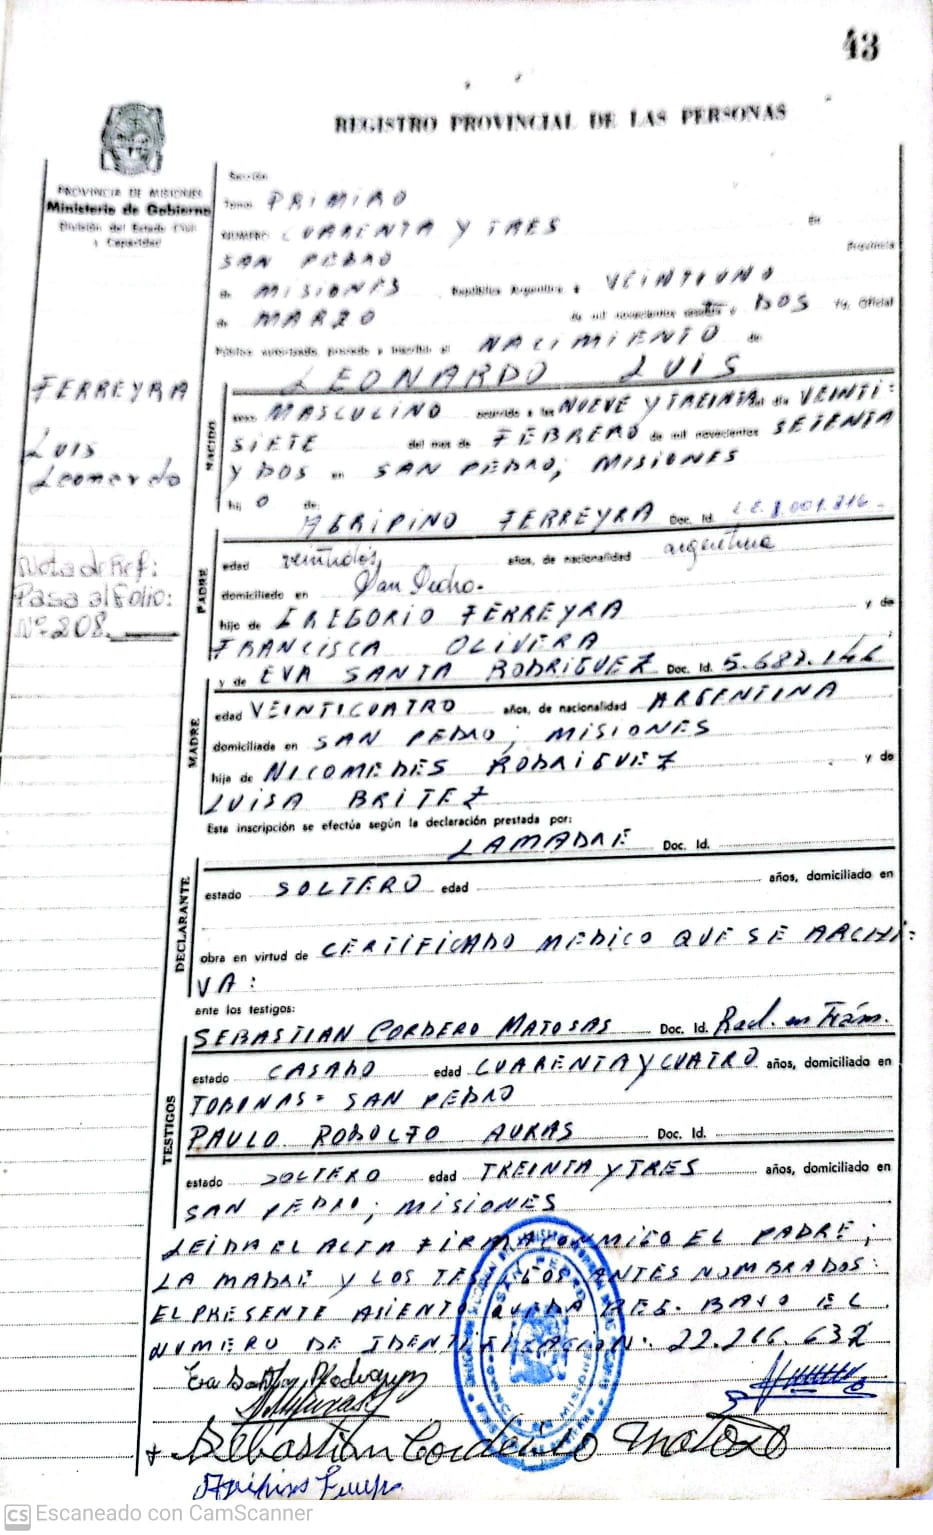 43
REGISTRO PROVINCIAL DE LAS PERSONAS
PROVINCIA DE MISIONES
Ministerio de Gobierno
División del Estado Civil
y Capacidad
Sección
Tomo PRIMERO
NUMERO CUARENTA Y TRES En
SAN PEDRO Provincia
de MISIONES República Argentina a VEINTIUNO
de MARZO de mil novecientos setenta y DOS Yo, Oficial
Público autorizado, procedo a inscribir el NACIMIENTO de
LEONARDO LUIS
FERREYRA
LUIS
Leonardo
Nota de Ref:
Pasa al Folio:
Nº 208.
NACIDO
sexo MASCULINO ocurrido a las NUEVE Y TREINTA del día VEINTI=
SIETE del mes de FEBRERO de mil novecientos SETENTA
Y DOS en SAN PEDRO; MISIONES
hij O de:
PADRE
AGRIPINO FERREYRA Doc. Id.
edad veintidos, años, de nacionalidad argentina
domiciliado en San Pedro.-
hijo de GREGORIO FERREYRA y de
FRANCISCA OLIVERA
MADRE
y de EVA SANTA RODRIGUEZ Doc. Id. 5.687.146
edad VEINTICUATRO años, de nacionalidad ARGENTINA
domiciliada en SAN PEDRO, MISIONES
hija de NICOMEDES RODRIGUEZ y de
LUISA BRITEZ
Esta inscripción se efectúa según la declaración prestada por:
DECLARANTE
LA MADRE Doc. Id.
estado SOLTERO edad años, domiciliado en
obra en virtud de CERTIFICADO MEDICO QUE SE ARCHI=
VA:
ante los testigos:
TESTIGOS
SEBASTIAN CORDERO MATOSAS Doc. Id. Rad. en Trám.
estado CASADO edad CUARENTA Y CUATRO años, domiciliado en
TOBUNAS= SAN PEDRO
PAULO RODOLFO AURAS Doc. Id.
estado SOLTERO edad TREINTA Y TRES años, domiciliado en
SAN PEDRO; MISIONES
LEIDA EL ACTA FIRMA CONMIGO EL PADRE;
LA MADRE Y LOS TESTIGOS ANTES NOMBRADOS:
EL PRESENTE ASIENTO QUEDA REG. BAJO EL
NUMERO DE IDENTIFICACION: 22.266.632
Eva Santa Rodriguez
Sebastian Cordeiro Matoso
Agripino Ferreyra
CS Escaneado con CamScanner